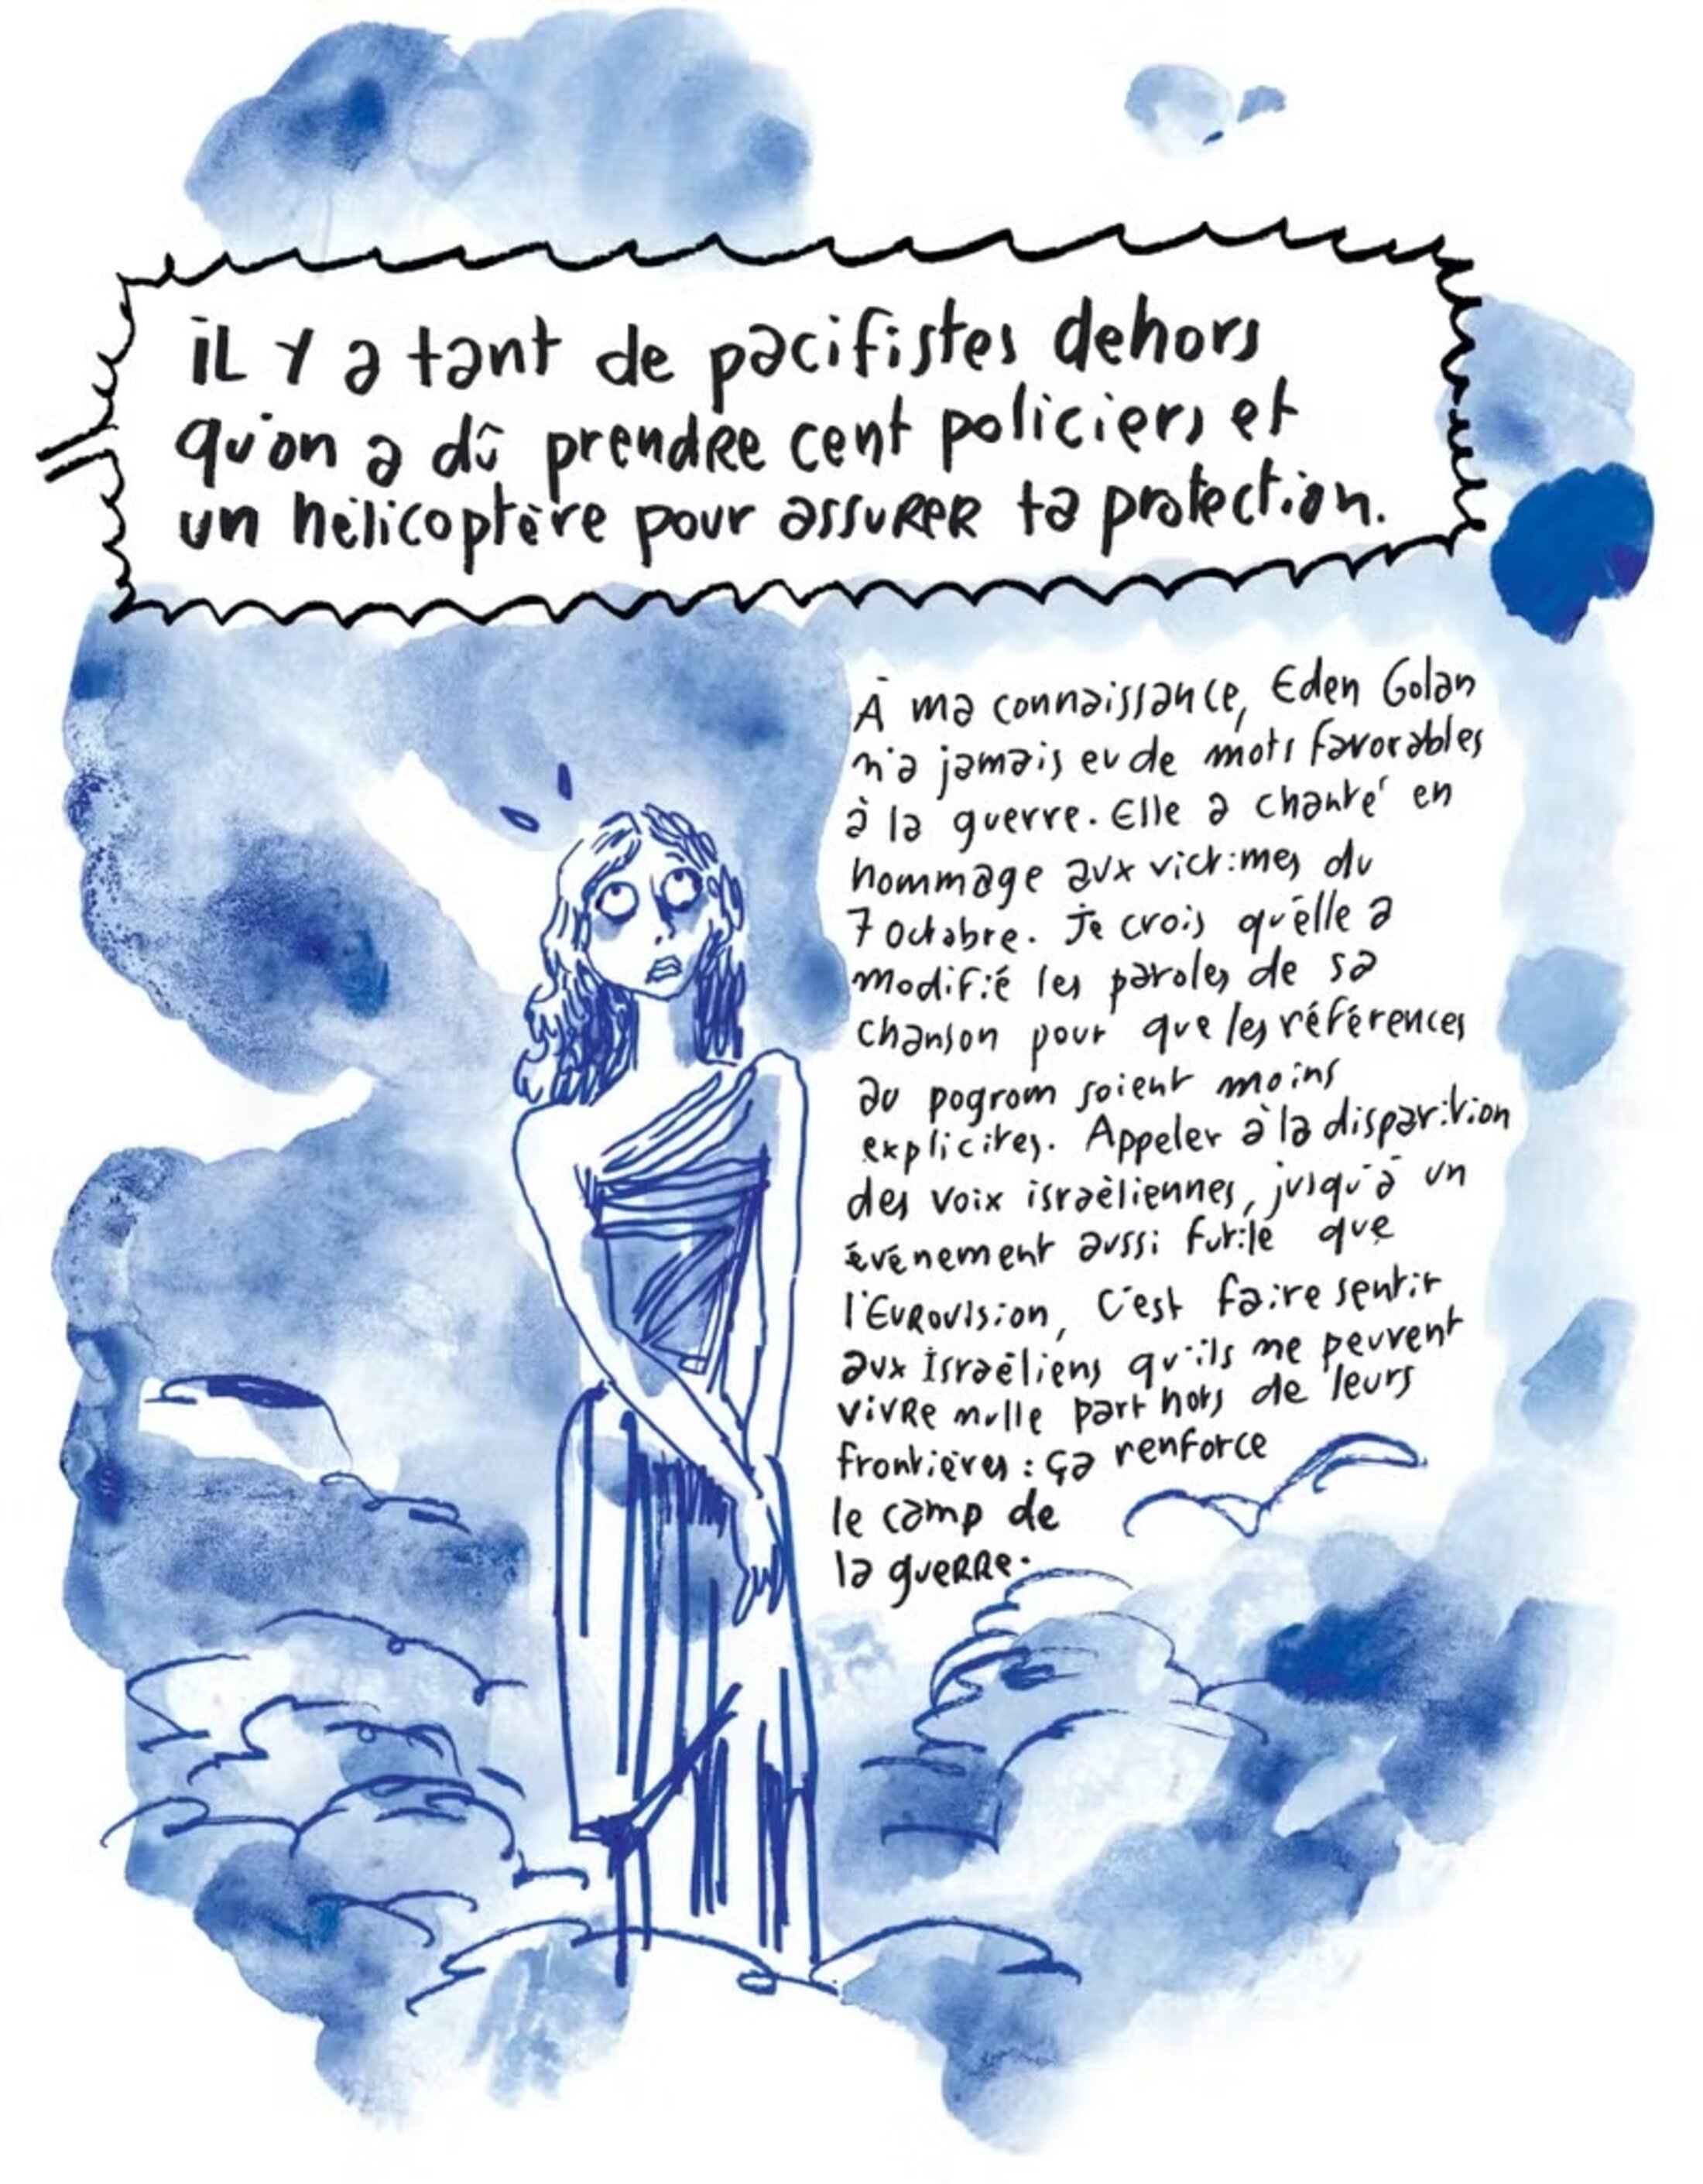 iL Y a tant de pacifistes dehors
qu'on a dû prendre cent policiers et
un hélicoptère pour assurer ta protection.
À ma connaissance, Eden Golan
n'a jamais eu de mots favorables
à la guerre. Elle a chanté en
hommage aux victimes du
7 octobre. Je crois qu'elle a
modifié les paroles de sa
chanson pour que les références
au pogrom soient moins
explicites. Appeler à la disparition
des voix israéliennes, jusqu'à un
événement aussi futile que
l'Eurovision, c'est faire sentir
aux Israéliens qu'ils ne peuvent
vivre nulle part hors de leurs
frontières : ça renforce
le camp de
la guerre.